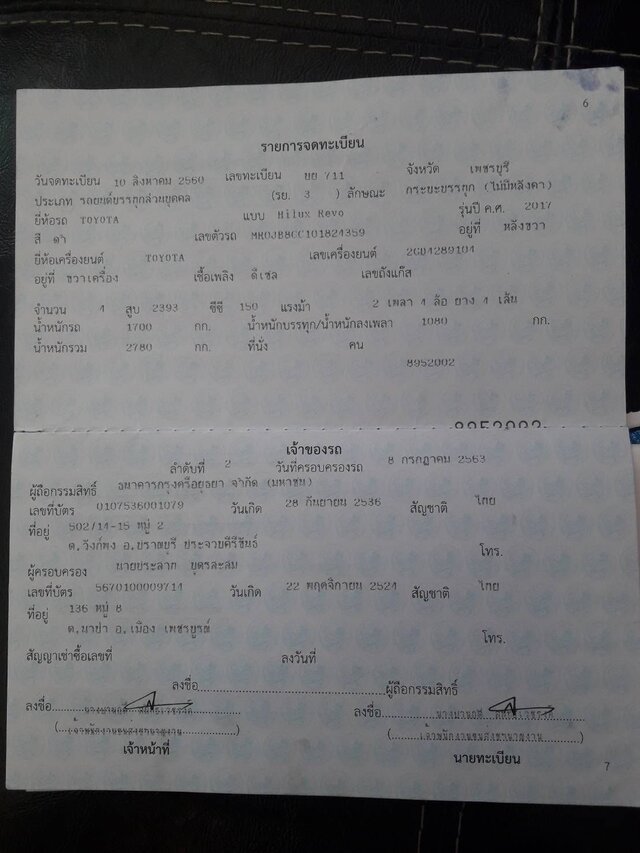 6
รายการจดทะเบียน
วันจดทะเบียน 10 สิงหาคม 2560 เลขทะเบียน ยย 711 จังหวัด เพชรบุรี
ประเภท รถยนต์บรรทุกส่วนบุคคล (รย. 3 ) ลักษณะ กระบะบรรทุก (ไม่มีหลังคา)
ยี่ห้อรถ TOYOTA แบบ Hilux Revo รุ่นปี ค.ศ. 2017
สี ดำ เลขตัวรถ MR0JB8CC101824359 อยู่ที่ หลังขวา
ยี่ห้อเครื่องยนต์ TOYOTA เลขเครื่องยนต์ 2GD4289104
อยู่ที่ ขวาเครื่อง เชื้อเพลิง ดีเซล เลขถังแก๊ส
จำนวน 4 สูบ 2393 ซีซี 150 แรงม้า 2 เพลา 4 ล้อ ยาง 4 เส้น
น้ำหนักรถ 1700 กก. น้ำหนักบรรทุก/น้ำหนักลงเพลา 1080 กก.
น้ำหนักรวม 2780 กก. ที่นั่ง คน
8952002
8952002
เจ้าของรถ
ลำดับที่ 2 วันที่ครอบครองรถ 8 กรกฎาคม 2563
ผู้ถือกรรมสิทธิ์ ธนาคารกรุงศรีอยุธยา จำกัด (มหาชน)
เลขที่บัตร 0107536001079 วันเกิด 28 กันยายน 2536 สัญชาติ ไทย
ที่อยู่ 502/14-15 หมู่ 2
ต.วังก์พง อ.ปราณบุรี ประจวบคีรีขันธ์ โทร.
ผู้ครอบครอง นายประลาภ
เลขที่บัตร 5670100009714 วันเกิด 22 พฤศจิกายน 2524 สัญชาติ ไทย
ที่อยู่ 136 หมู่ 8
ต.นาป่า อ.เมือง เพชรบูรณ์ โทร.
สัญญาเช่าซื้อเลขที่ ลงวันที่
ลงชื่อ ผู้ถือกรรมสิทธิ์
ลงชื่อ ลงชื่อ
(เจ้าพนักงานขนส่งชำนาญงาน) (เจ้าพนักงานขนส่งชำนาญงาน)
เจ้าหน้าที่ นายทะเบียน
7